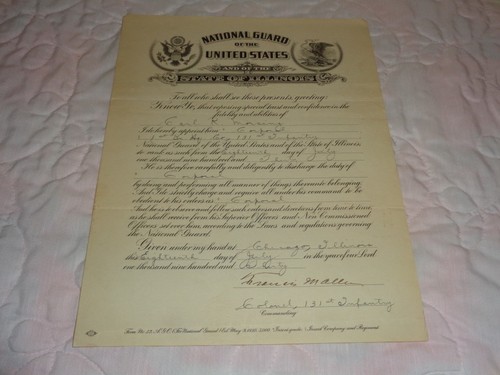 NATIONAL GUARD
OF THE
UNITED STATES
AND OF THE
STATE OF ILLINOIS
To all who shall see these presents, greeting:
Know Ye, that reposing special trust and confidence in the
fidelity and abilities of
Carl
I do hereby appoint him Corporal
Hq. Co. 131st Infantry
National Guard of the United States and of the State of Illinois,
to rank as such from the Eighteenth day of July
one thousand nine hundred and
He is therefore carefully and diligently to discharge the duty of
Corporal
by doing and performing all manner of things thereunto belonging.
And I do strictly charge and require all under his command to be
obedient to his orders as Corporal
And he is to observe and follow such orders and directions from time to time,
as he shall receive from his Superior Officers and Non Commissioned
Officers set over him, according to the Laws and regulations governing
the National Guard.
Given under my hand at Chicago, Illinois
this Eighteenth day of July in the year of our Lord
one thousand nine hundred and
Francis M. Allen
Colonel, 131st Infantry
Commanding